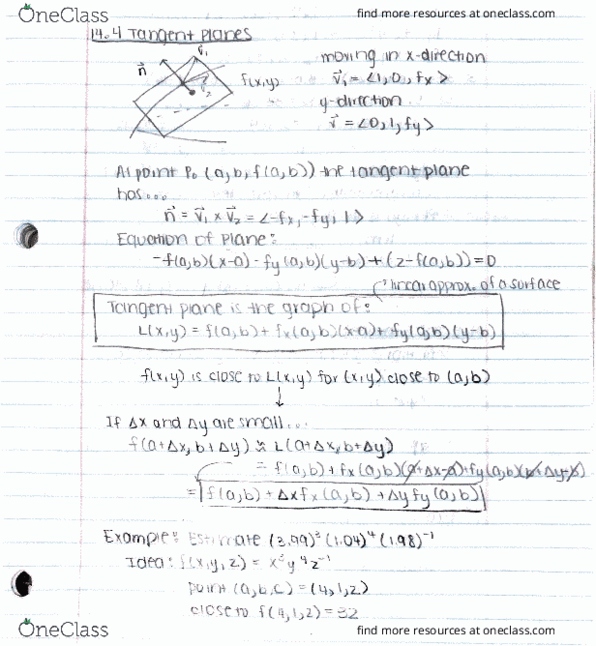 OneClass
find more resources at oneclass.com
14.4 Tangent Planes
n⃗
v⃗₁
v⃗₂
f(x,y)
moving in x-direction
v⃗₁ = <1, 0, fx>
y-direction
v⃗ = <0, 1, fy>
At point P₀ (a, b, f(a,b)) the tangent plane
has...
n⃗ = v⃗₁ × v⃗₂ = <-fx, -fy, 1>
Equation of plane:
-f(a,b)(x-a) - fy(a,b)(y-b) + (z-f(a,b)) = 0
linear approx. of a surface
Tangent plane is the graph of:
L(x,y) = f(a,b) + fx(a,b)(x-a) + fy(a,b)(y-b)
f(x,y) is close to L(x,y) for (x,y) close to (a,b)
↓
If Δx and Δy are small...
f(a+Δx, b+Δy) ≈ L(a+Δx, b+Δy)
= f(a,b) + fx(a,b)(a+Δx-a) + fy(a,b)(b+Δy-b)
= f(a,b) + Δx fx(a,b) + Δy fy(a,b)
Example: Estimate (3.99)³ (1.04)⁴ (1.98)⁻¹
Idea: f(x,y,z) = x³y⁴z⁻¹
point (a,b,c) = (4,1,2)
close to f(4,1,2) = 32
OneClass
find more resources at oneclass.com